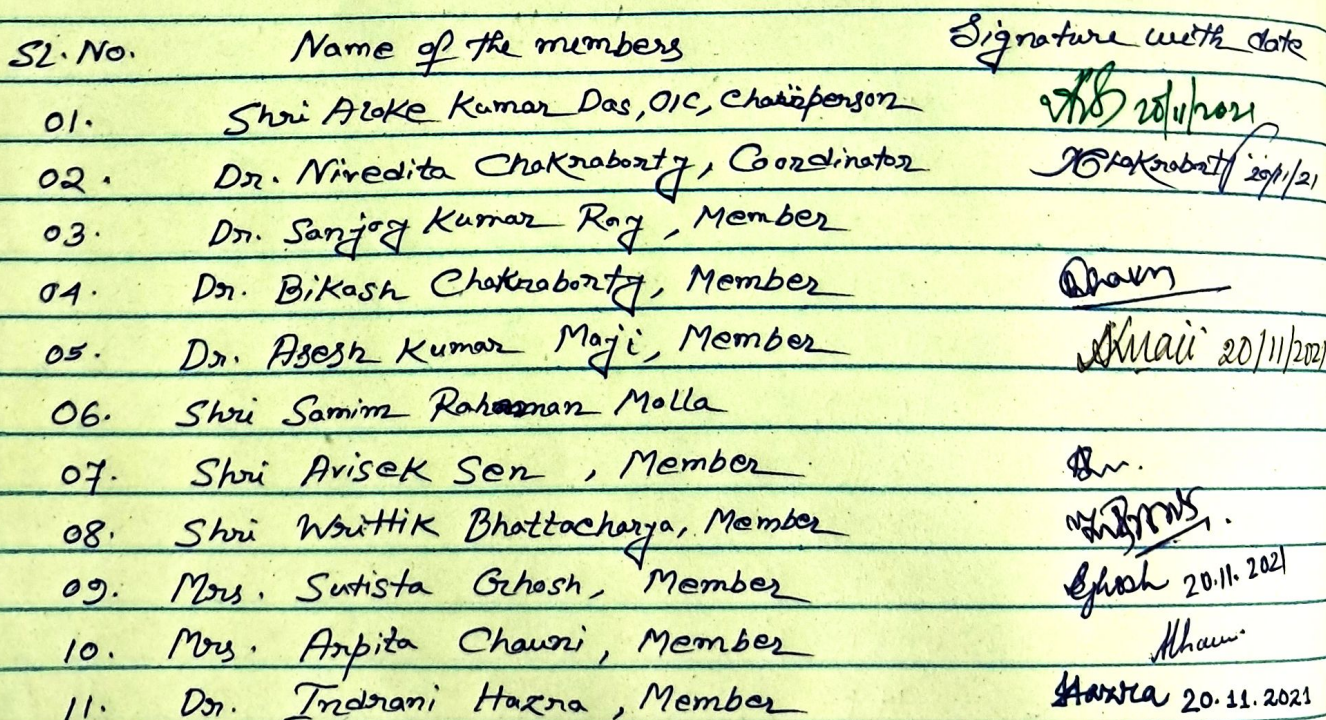 Sl. No. Name of the members Signature with date
01. Shri Aloke Kumar Das, OIC, Chairperson 20/11/2021
02. Dr. Nivedita Chakraborty, Coordinator NChakraborty 20/11/21
03. Dr. Sanjoy Kumar Roy, Member
04. Dr. Bikash Chakraborty, Member
05. Dr. Asesh Kumar Maji, Member AKMaji 20/11/2021
06. Shri Samim Rahaman Molla
07. Shri Avisek Sen, Member
08. Shri Writtik Bhattacharya, Member
09. Mrs. Sutista Ghosh, Member SGhosh 20.11.2021
10. Mrs. Arpita Chauni, Member
11. Dr. Indrani Hazra, Member Hazra 20.11.2021